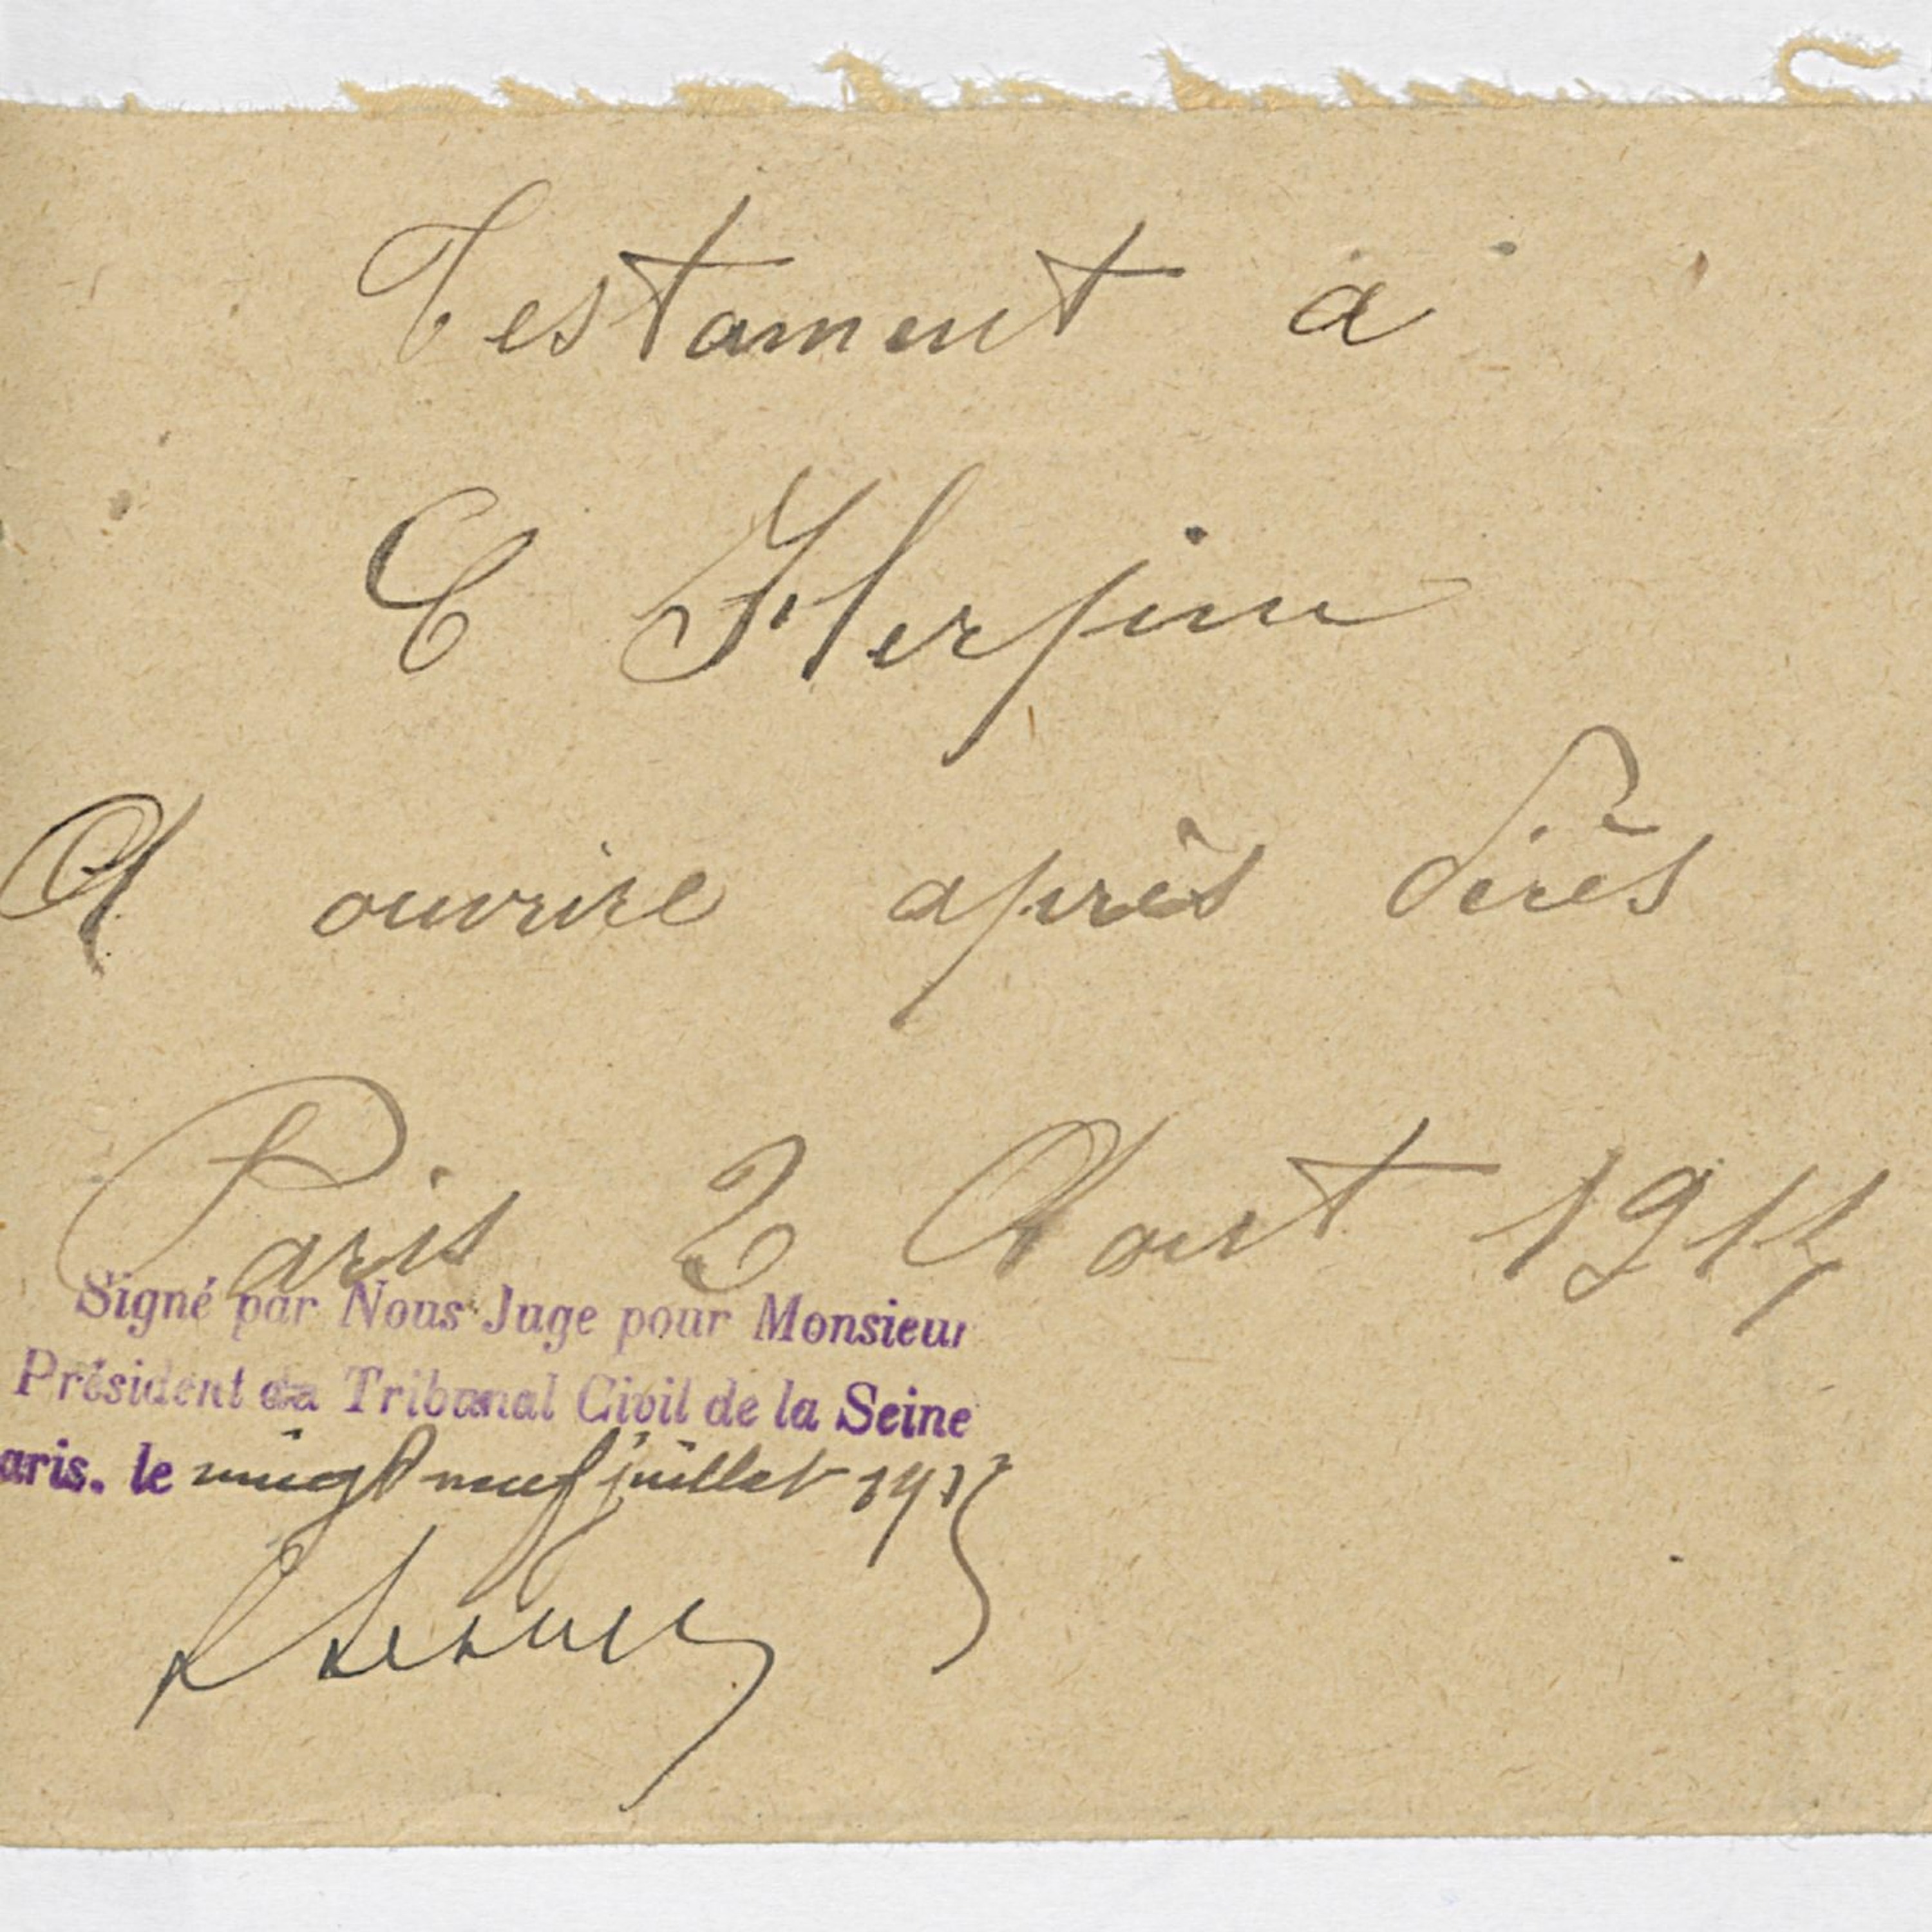 Testament à
C Herpin
A ouvrire après dérès
Paris 2 Aout 1914
Signé par Nous Juge pour Monsieur
Président du Tribunal Civil de la Seine
aris. le vingt neuf juillet